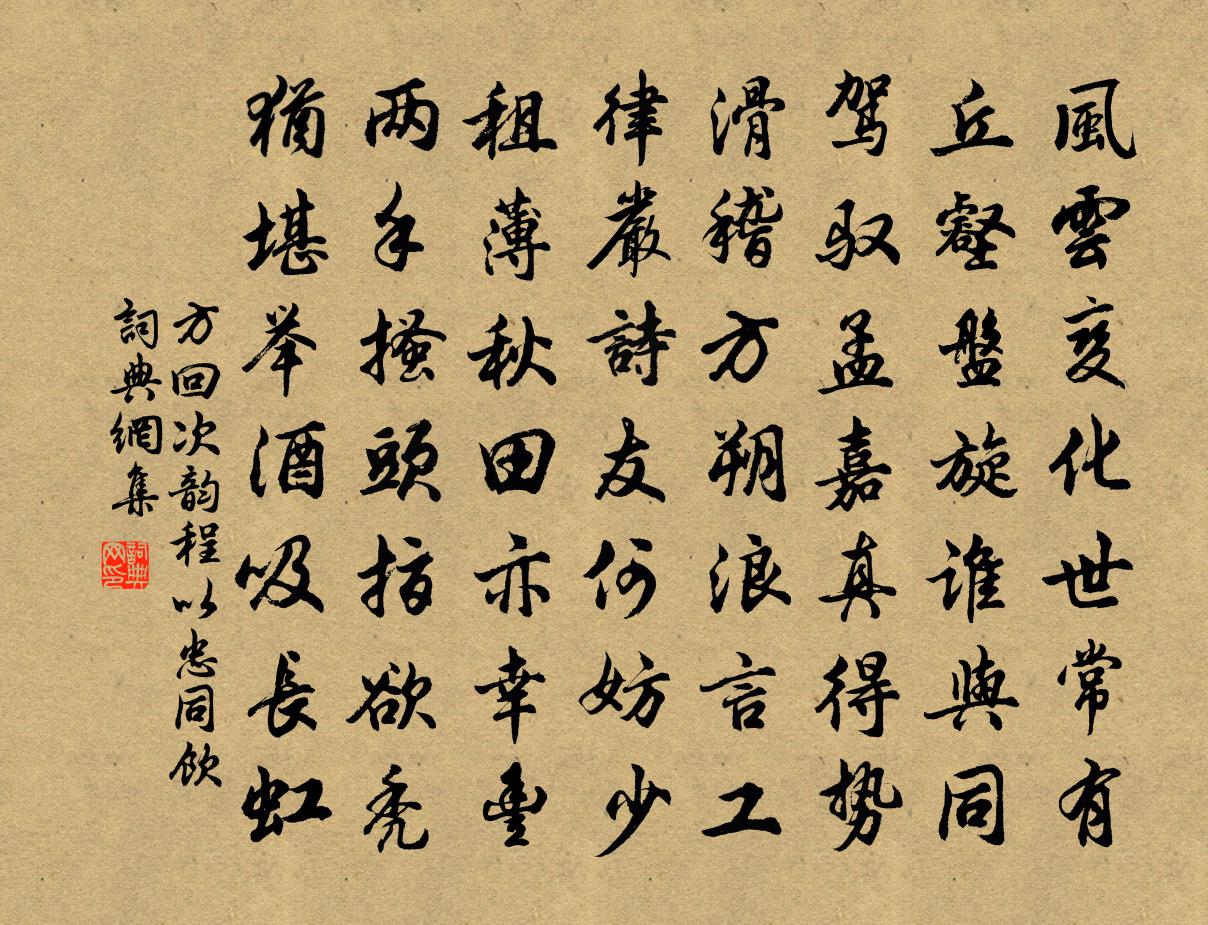 風雲变化世常有
丘壑盤旋谁與同
驾驭孟嘉真得势
滑稽方朔浪言工
律嚴詩友何妨少
租薄秋田亦幸豊
两手搔頭指欲秃
猶堪举酒吸長虹
方回次韵程以忠同飲
詞典網集
詞典网印